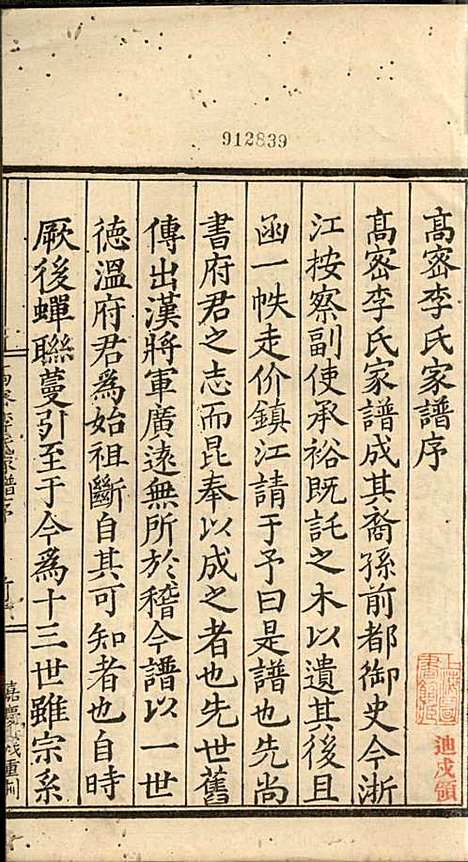 912839
髙密李氏家譜序
髙密李氏家譜成其裔孫前都御史今浙
江按察副使承裕既託之木以遺其後且
函一帙走价鎮江請于予曰是譜也先尚
書府君之志而昆奉以成之者也先世舊
傳出漢將軍廣逺無所於稽今譜以一世
徳溫府君爲始祖斷自其可知者也自時
厥後蟬聯蔓引至于今爲十三世雖宗系
迪戌領